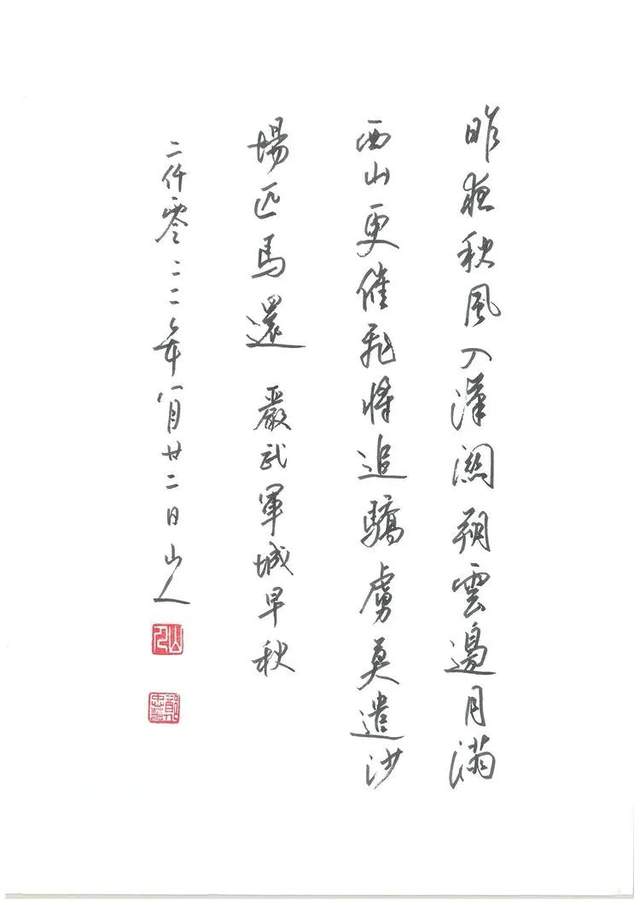 昨夜秋風入漢關朔雲邊月滿
西山更催飛將追驕虜莫遣沙
場匹馬還 嚴武軍城早秋
二仟零二二年八月廿二日山人
山人